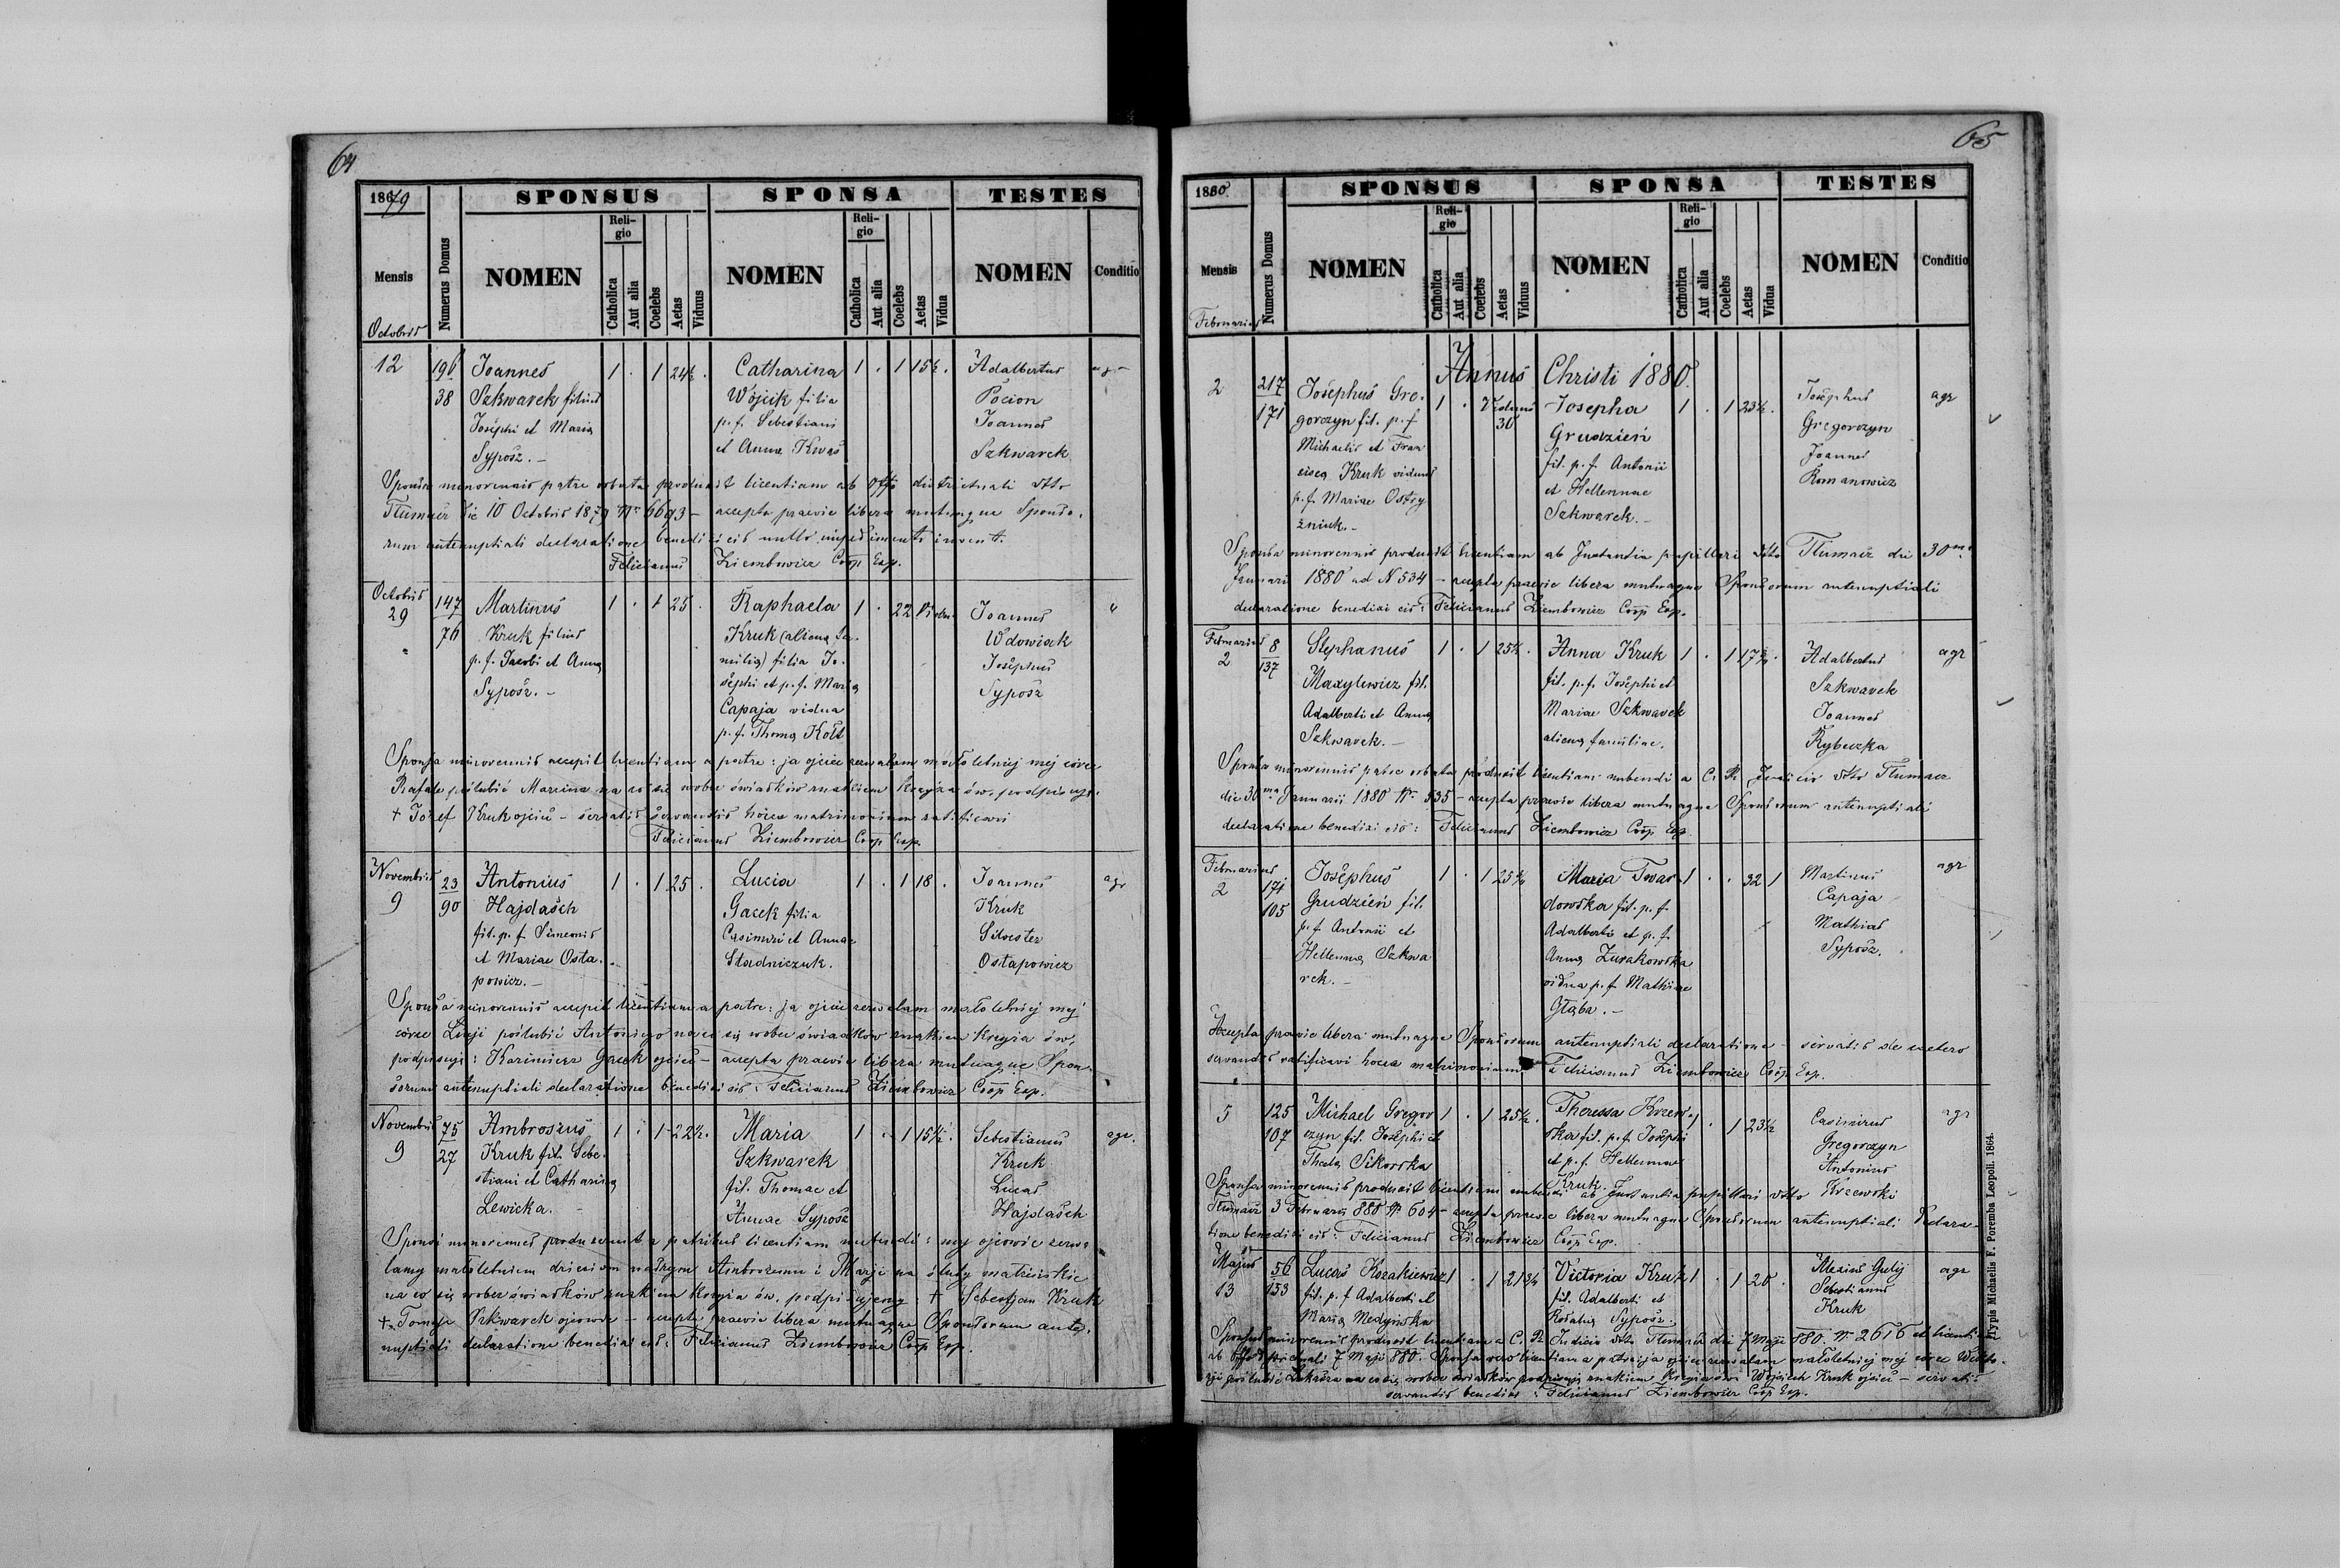 64
1879
SPONSUS SPONSA TESTES
Mensis Numerus Domus NOMEN Religio Catholica Aut alia Coelebs Aetas Viduus NOMEN Religio Catholica Aut alia Coelebs Aetas Vidua NOMEN Conditio
Octobris
12 196 Joannes 1 . 1 24½ . Catharina 1 . 1 15½ . Adalbertus agr
38 Szkwarek filius Wójcik filia Pocion
Josephi et Maria p. f. Sebastiani Joannes
Syposz. – et Anna Kwaś Szkwarek
Sponsa minorennis patre orbata produxit licentiam ab Offo districtuali dtto
Tłumacz die 10 Octobris 1879 Nr 6693 – accepta praevie libera mutuaque Sponso-
rum antenuptiali declaratione benedixi eis nullo impedimento invent.
Felicianus Ziembowicz Coop Exp.
Octobris 147 Martinus 1 . 1 25 . Raphaela 1 . 22 Vidu. Joannes "
29 76 Kruk filius Kruk (aliena fa- Wdowiak
p. f. Jacobi et Anna milia) filia Jo- Josephus
Syposz. – sephi et p. f. Maria Syposz
Capaja vidua
p. f. Thoma Kott
Sponsa minorennis accepit licentiam a patre: ja ojciec zezwalam małoletniej mej córce
Rafale poślubić Marcina na co się wobec świadków znakiem krzyża św. podpisuję.
+ Józef Kruk ojciec – servatis servandis hocce matrimonium ratificavi
Felicianus Ziembowicz Coop Exp.
Novembris 23 Antonius 1 . 1 25 . Lucia 1 . 1 18 . Joannes agr
9 90 Hajdasch Gacek filia Kruk
fil. p. f. Simeonis Casimiri et Annae Silvester
et Mariae Osta- Stadniczuk. Ostapowicz
powicz. –
Sponsa minorennis accepit licentiam a patre: ja ojciec zezwalam małoletniej mej
córce Łucji poślubić Antoniego na co się wobec świadków znakiem krzyża św.
podpisuję: Kazimierz Gacek ojciec – accepta praevie libera mutuaque Spon-
sorum antenuptiali declaratione benedixi eis: Felicianus Ziembowicz Coop Exp.
Novembris 75 Ambrosius 1 . 1 22½ . Maria 1 . 1 15½ . Sebastianus agr.
9 27 Kruk fil. Seba- Szkwarek Kruk
stiani et Catharina fil. Thomae et Lucas
Lewicka. – Annae Syposz Hajdasch
Sponsi minorennes produxerunt a patribus licentiam nubendi: my ojcowie zezwa-
lamy małoletniem dzieciom naszym Ambrożemu i Marji na śluby małżeńskie
na co się wobec świadków znakiem krzyża św. podpisujemy: + Sebastjan Kruk
+ Tomasz Szkwarek ojcowie – accepta praevie libera mutuaque Sponsorum ante-
nuptiali declaratione benedixi eis: Felicianus Ziembowicz Coop Exp.
65
1880
SPONSUS SPONSA TESTES
Mensis Numerus Domus NOMEN Religio Catholica Aut alia Coelebs Aetas Viduus NOMEN Religio Catholica Aut alia Coelebs Aetas Vidua NOMEN Conditio
Februarius
Annus Christi 1880.
2 217 Josephus Gre- 1 . Viduus 30 Josepha 1 . 1 23½ . Josephus agr
171 gorczyn fil. p. f. Grudzień Gregorczyn
Michaelis et Fran- fil. p. f. Antonii Joannes
cisca Kruk viduus et Hellennae Romanowicz
p. f. Mariae Ostry Szkwarek. –
żniuk. –
Sponsa minorennis produxit licentiam ab Instantia pupillari dtto Tłumacz die 30ma
Januarii 1880 ad N 534 – accepta praevie libera mutuaque Sponsorum antenuptiali
declaratione benedixi eis: Felicianus Ziembowicz Coop Exp.
Februarius 8 Stephanus 1 . 1 25½ . Anna Kruk 1 . 1 17 . Adalbertus agr
2 137 Maxylewicz fil. fil. p. f. Josephi et Szkwarek
Adalberti et Anna Mariae Szkwarek Joannes
Szkwarek. – aliena familiae. Rybeczka
Sponsa minorennis patre orbata produxit licentiam nubendi a C. R. Judicio dtto Tłumacz
die 30ma Januarii 1880 Nr 535 – accepta praevie libera mutuaque Sponsorum antenuptiali
declaratione benedixi eis: Felicianus Ziembowicz Coop Exp.
Februarius 171 Josephus 1 . 1 25 Maria Towar- 1 . . 32 1 Martinus agr
2 105 Grudzień fil. dowska fil. p. f. Capaja
p. f. Antonii et Adalberti et p. f. Mathias
Hellenna Szkwa Anna Żurakowska Syposz.
rek. – vidua p. f. Mathiae
Głąba. –
Accepta praevie libera mutuaque Sponsorum antenuptiali declaratione – servatis de caetero
servandis ratificavi hocce matrimonium Felicianus Ziembowicz Coop Exp.
5 125 Michael Gregor 1 . 1 25½ . Theressa Krzew- 1 . 1 23½ Casimirus agr
107 czyn fil. Josephi et ska fil. p. f. Josephi Gregorczyn
Thecla Sikorska et p. f. Hellennae Antonius
Kruk. Krzewski
Sponsa minorennis produxit licentiam nubendi ab Instantia pupillari dtto
Tłumacz 3 Februarii 880 Nr 604 – accepta praevie libera mutuaque Sponsorum antenuptiali declara-
tione benedixi eis: Felicianus Ziembowicz Coop Exp.
Majus 56 Lucas Kozakiewicz 1 . 1 21¾ Victoria Kruk 1 . 1 20 . Alexius Gulij agr
13 153 fil. p. f. Adalberti et fil. Adalberti et Sebastianus
Maria Medyńska Rosalia Syposz. Kruk
Sponsus minorennis produxit licentiam a C. R. Judicio dtto Tłumacz die 7 Maji 880. Nr 2616 et licentiam
ab Offo districtuali 7 Maji 880. Sponsa vero licentiam a patre: ja ojciec zezwalam małoletniej mej córce Wikto-
rji poślubić Łukasza na co się wobec świadków podpisuję znakiem krzyża św. Wojciech Kruk ojciec – servatis
servandis benedixi: Felicianus Ziembowicz Coop Exp.
Typis Michaelis F. Poremba Leopoli. 1864.